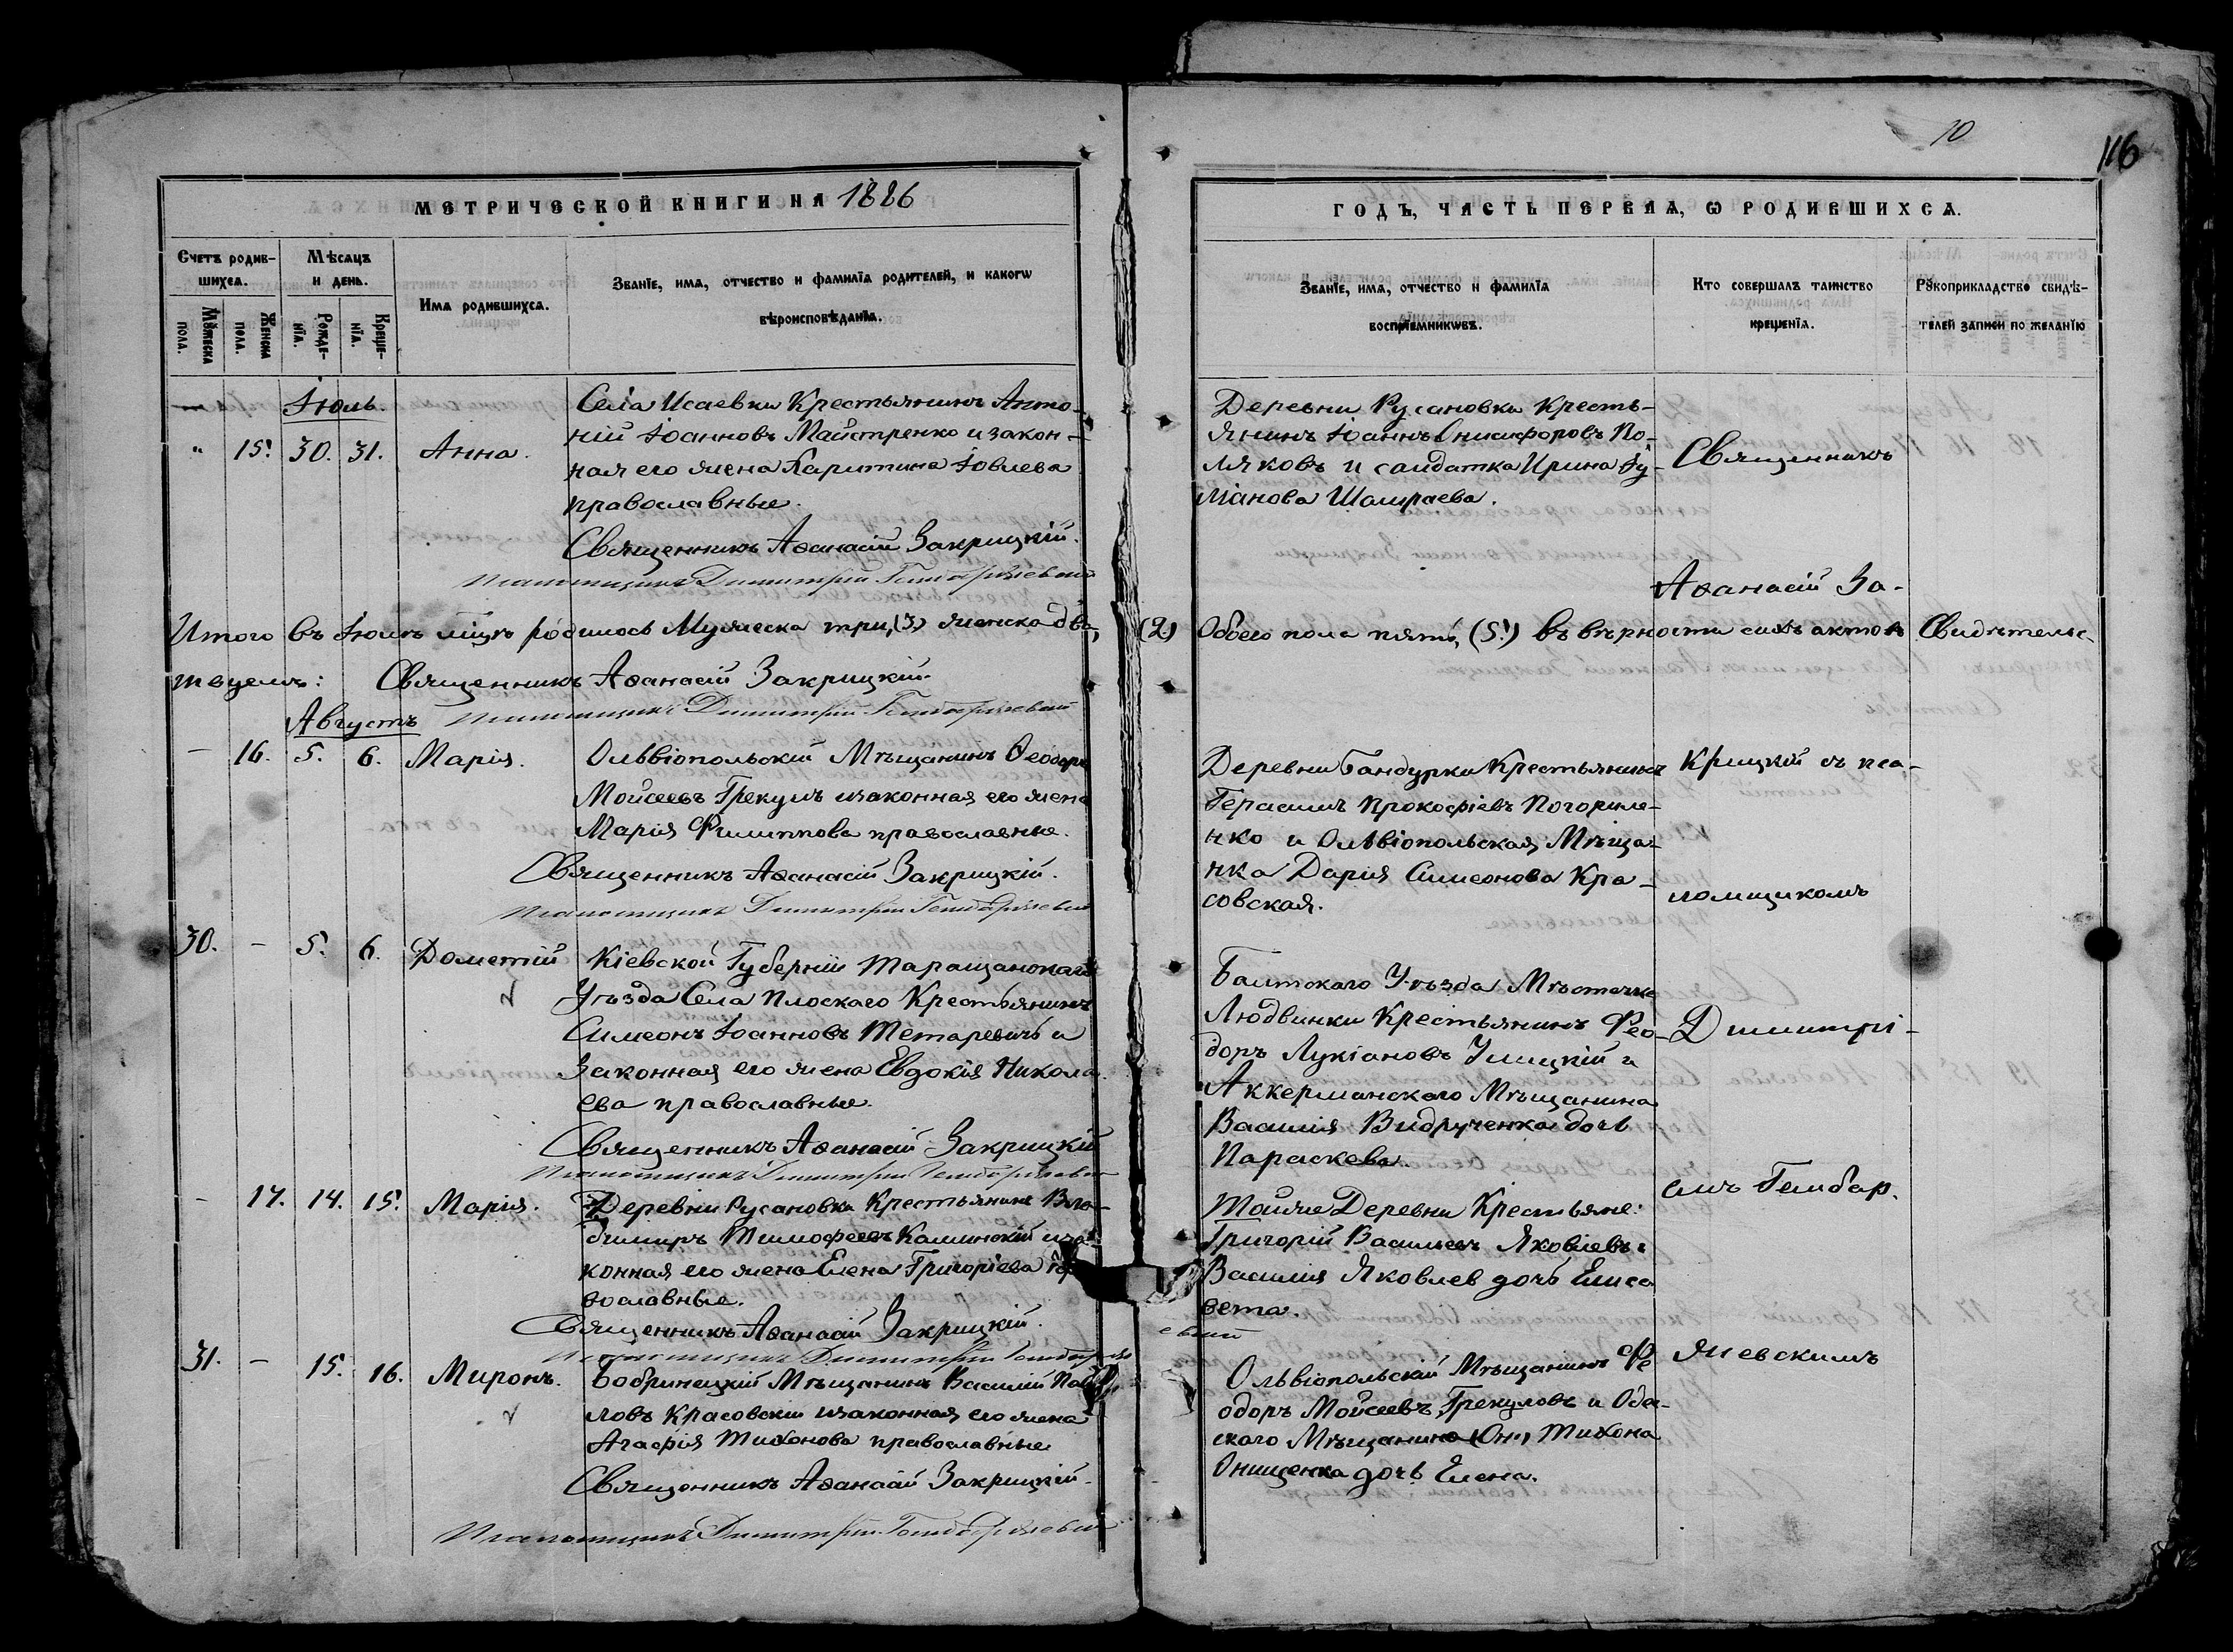 10
116
МЕТРИЧЕСКОЙ КНИГИ НА 1886
ГОДЪ, ЧАСТЬ ПЕРВАЯ, Ѡ РОДИВШИХСѦ.
Счетъ родив-
шихсѧ.
Мѣсѧцъ
и день.
Имѧ родившихсѧ.
Званїе, имѧ, отчество и фамилїѧ родителей, и какогѡ
вѣроисповѣданїѧ.
Мꙋжеска
пола.
Женска
пола.
Рожде-
нїѧ.
Креще-
нїѧ.
Званїе, имѧ, отчество и фамилїѧ
воспрїемникѡвъ.
Кто совершалъ таинство
крещенїѧ.
Рꙋкоприкладство свидѣ-
телей записи по желанїю
Іюль.
" 15. 30. 31. Анна.
Села Исаевки Крестьянинъ Анто-
ній Іоанновъ Майстренко и закон-
ная его жена Харитина Іовлева
православные.
Священникъ Аѳанасій Закрицкій.
Псаломщикъ Димитрій
Деревни Русановки Кресть-
янинъ Іоаннъ Онисифоровъ По-
ляковъ и солдатка Ирина Іу-
ліанова Шамраева.
Священникъ
Аѳанасій За-
Итого въ Іюлѣ мцѣ родилось Мужеска три, (3) женска два, (2) Обоего пола пять, (5) Въ вѣрности сихъ актовъ Свидѣтельс-
твуемъ: Священникъ Аѳанасій Закрицкій.
Псаломщикъ Димитрій
Августъ
- 16. 5. 6. Марія.
Ольвіопольскій Мѣщанинъ Ѳеодоръ
Моисеевъ Грекулъ и законная его жена
Марія Филиппова православные.
Священникъ Аѳанасій Закрицкій.
Псаломщикъ Димитрій
Деревни Бандурки Крестьянинъ
Герасимъ Прокофіевъ Погориле-
нко и Ольвіопольская Мѣща-
нка Дарія Симеонова Кра-
совская.
Крицкій съ пса-
ломщикомъ
30. - 5. 6. Дометій
Кіевской Губерніи Таращанскаго
Уѣзда Села Плоскаго Крестьянинъ
Симеонъ Іоанновъ Тетаревичъ и
Законная его жена Евдокія Никола-
ева православные.
Священникъ Аѳанасій Закрицкій
Псаломщикъ Димитрій
Балтскаго Уѣзда Мѣстечка
Людвинки Крестьянинъ Фео-
доръ Лукіановъ Улицкій и
Аккерманскаго Мѣщанина
Василія Видрученка дочь
Параскева.
Димитрі-
емъ Гембар.
- 17. 14. 15. Марія.
Деревни Русановки Крестьянинъ Вла-
димиръ Тимофеевъ Калинскій и за-
конная его жена Елена Григоріева
вославные.
Священникъ Аѳанасій Закрицкій.
Псаломщикъ Димитрій
Тойже Деревни Крестьяне:
Григорій Васильевъ Яковлевъ и
Василія Яковлев дочь Елиса
вета.
31. - 15. 16. Миронъ.
Бобринецкій Мѣщанинъ Василій Пав-
ловъ Красовскій и законная его жена
Агафія Тихонова православные
Священникъ Аѳанасій Закрицкій.
Псаломщикъ Димитрій
Ольвіопольскій Мѣщанинъ Фе
одоръ Моисеевъ Грекуловъ и Оде-
скаго Мѣщанина (Он.) Тихона
Онищенка дочь Елена.
жевскимъ